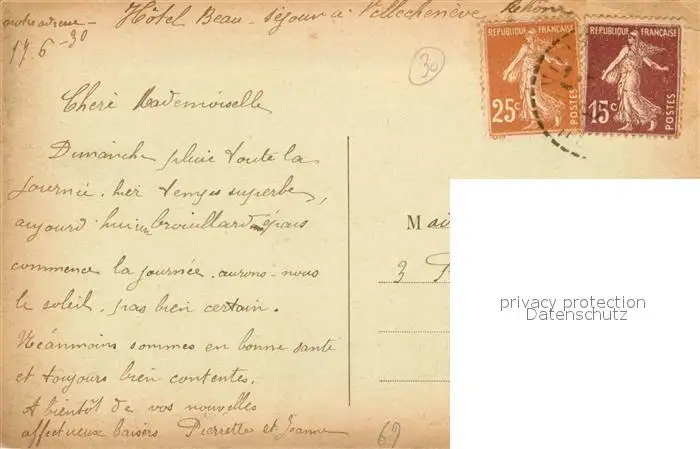 notre adresse - Hôtel Beau-séjour à Villechenève, Rhône
17-6-30
30
REPUBLIQUE FRANÇAISE
25c
POSTES
REPUBLIQUE FRANÇAISE
15c
POSTES
Cheré Mademoiselle
Dimanche pluie toute la
journée. hier temps superbe,
aujourd'hui un brouillard épais
commence la journée. aurons-nous
le soleil. pas bien certain.
Néanmoins sommes en bonne santé
et toujours bien contentes.
A bientôt de vos nouvelles
affectueux baisers Pierrette et Jeanne
M
3
69
privacy protection
Datenschutz